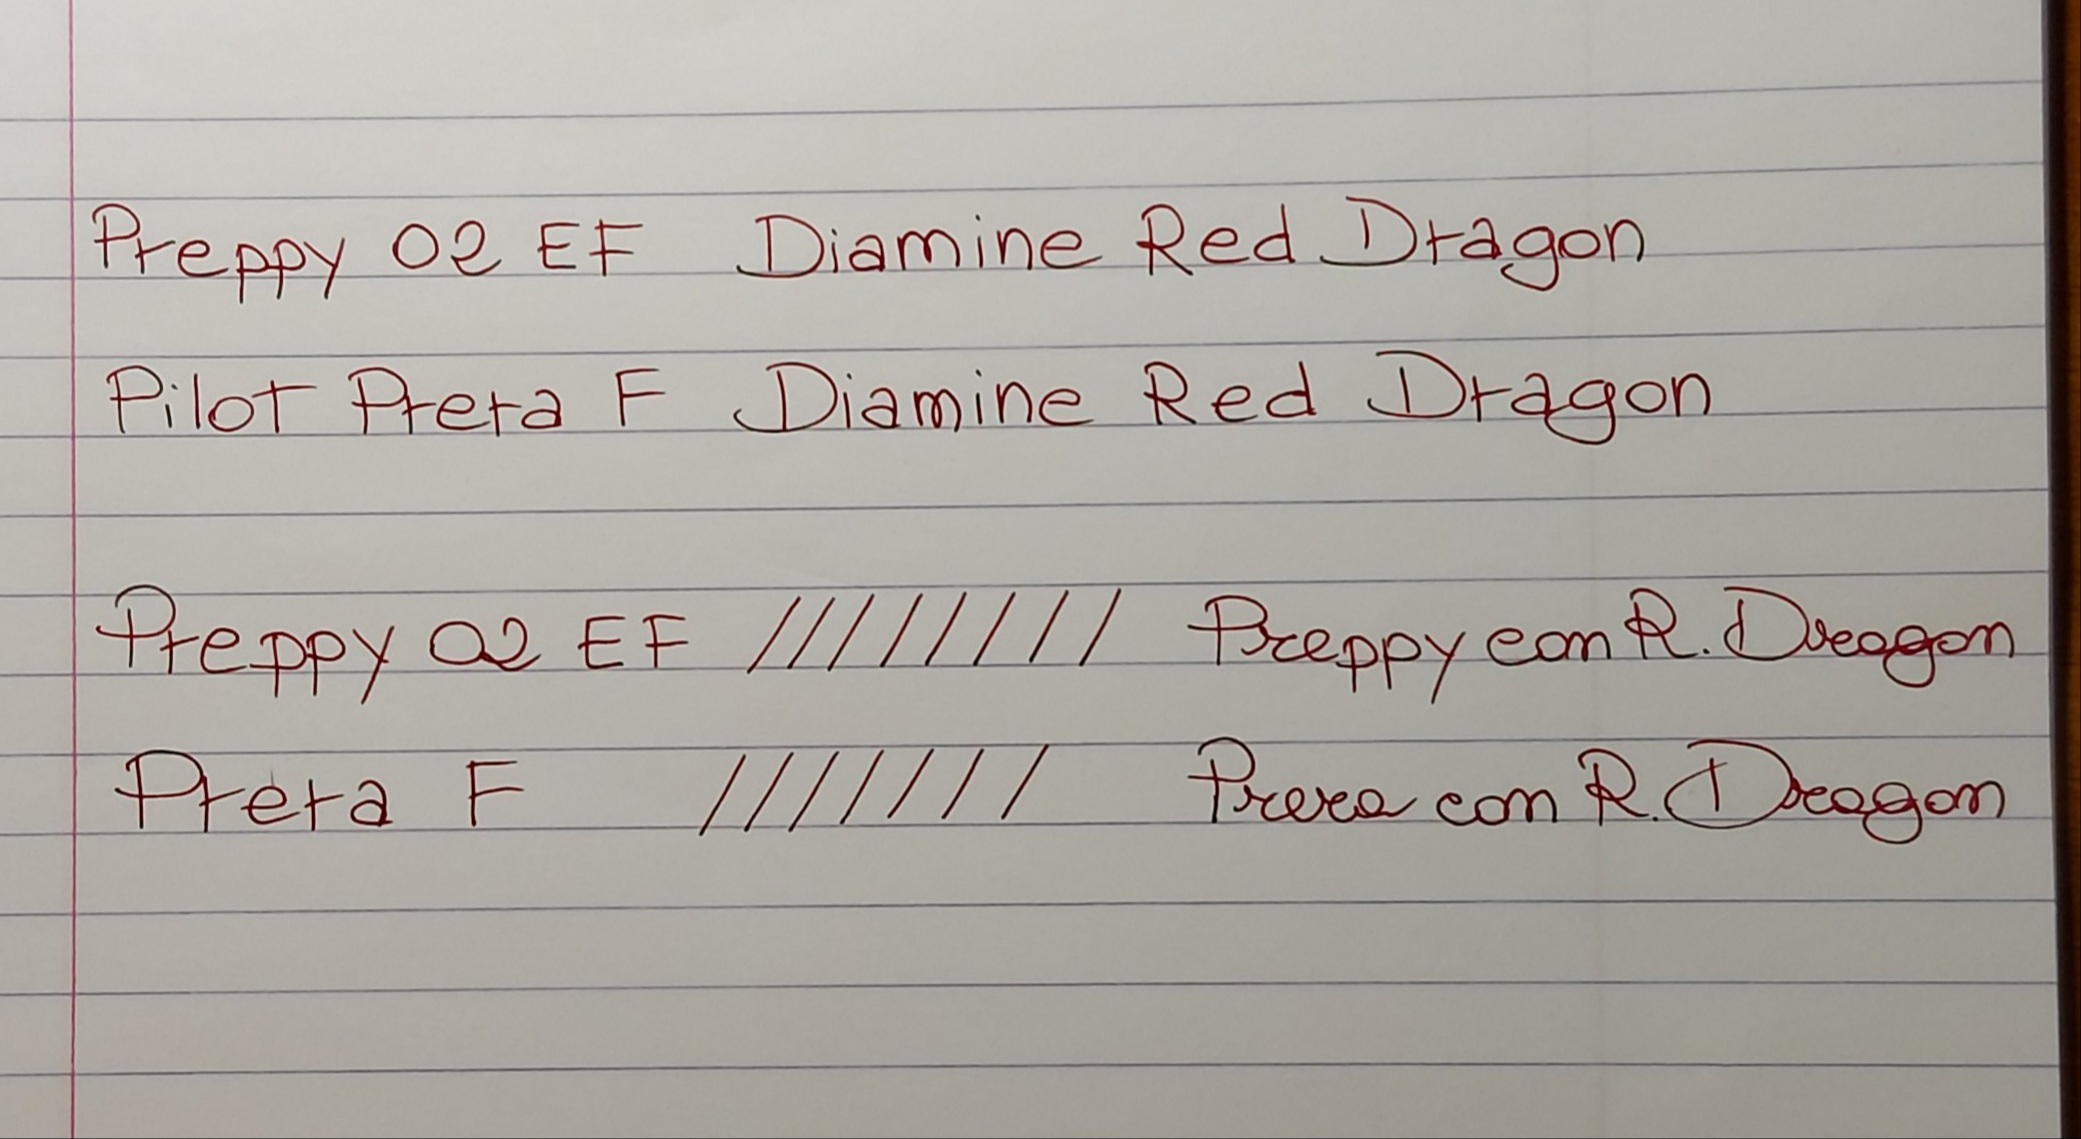 Preppy 02 EF Diamine Red Dragon
Pilot Prera F Diamine Red Dragon
Preppy 02 EF //////// Preppy con R. Dragon
Prera F /////// Prera con R. Dragon